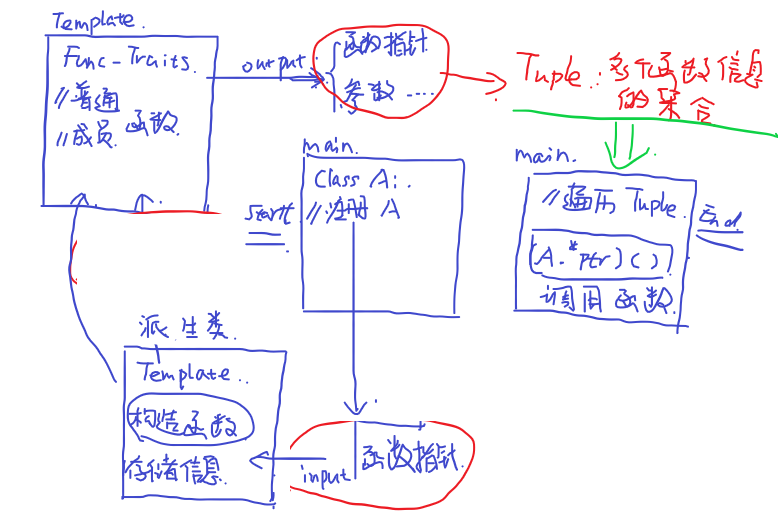 Template.
Func-Traits.
//普通
//成员. 函数.
output.
函数指针
参数 ....
Tuple.: 多个函数信息
的集合
main.
Class A:.
//注册 A
Start.
main.
//遍历 Tuple.
(A.*ptr)()
调用函数.
End.
派生类.
Template..
构造函数
存储信息.
input
函数指针.